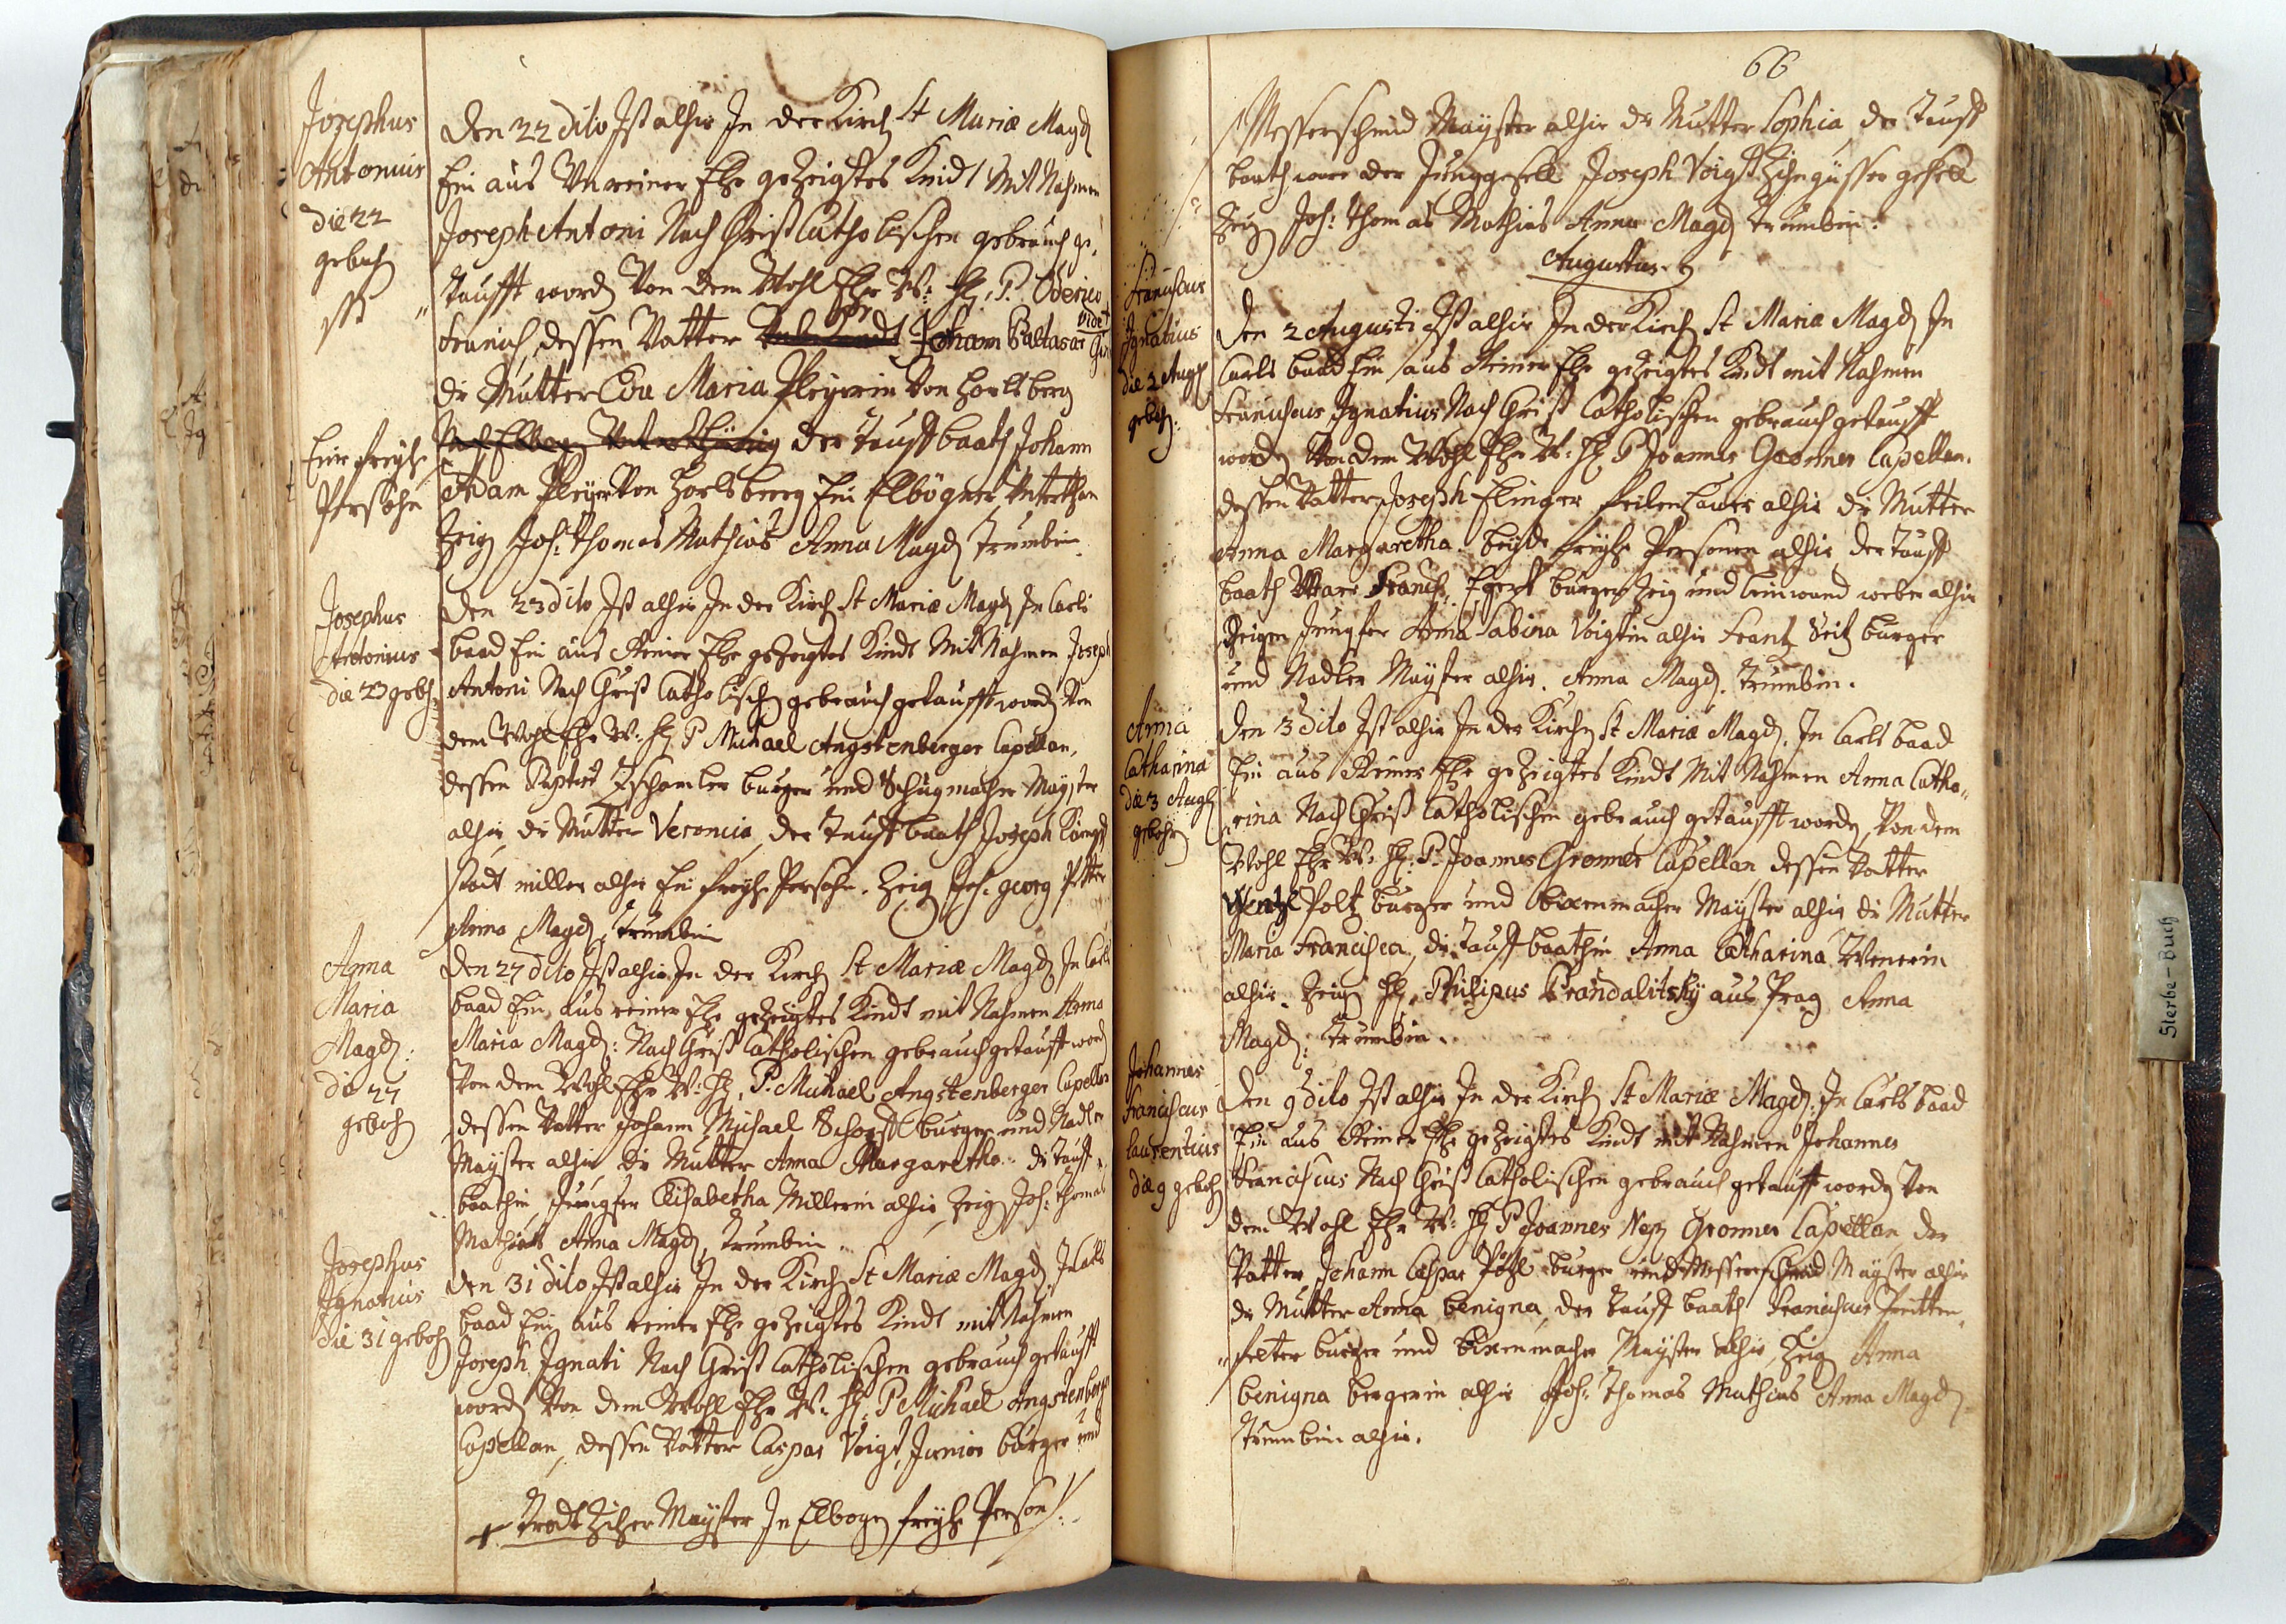 Josephus
Antonius
die 22
geboh
Den 22 dito Ist alhir In der Kirch St Mariæ Magd
Ein aus Unreiner Ehe gezeigtes Kindt Mit Nahmen
Joseph Antoni Nach Christ Catholischen gebrauch ge-
taufft word Von dem Wohl Ehr W: H: P. Oderico
dessen Vatter Johann Baltasar
videt
die Mutter Eva Maria Pleyerin Von Horlsberg
der tauff baath Johann
Adam Pleyer Von Horlsberg Ein Elbögner Unterthan
Zeig Joh: Thomas Mathias Anna Magd Trumbin
Eine freyhe
Persohn
Josephus
Antonius
die 23 geboh:
Den 23 dito Ist alhir In der Kirch St Mariæ Magd In Carls
baad Ein aus Reiner Ehe gezeigtes Kindt Mit Nahmen Joseph
Antoni Nach Christ Catholisch gebrauch getaufft word Von
dem Wohl Ehr W: H: P Michael Angstenberger Capellan,
dessen Baptist Tschamler burger und Schugmacher Mayster
alhir, die Mutter Veroncia, der tauff baath Joseph
stadt miller alhir Ein freyhe Persohn. Zeig Joh: georg
Anna Magd, Trumbin
Anna
Maria
Magd:
die 27
geboh
Den 27 dito Ist alhir In der Kirch St Mariæ Magd In Carls
baad Ein aus reiner Ehe gezeigtes Kindt mit Nahmen Anna
Maria Magd: Nach Christ Catholischen gebrauch getaufft word
Von dem Wohl Ehr W: H: P. Michael Angstenberger Capellan
dessen Vatter Johann Michael burger und Nadler
Mayster alhir die Mutter Anna Margaretha. die tauff
baathin, Jungfer Elisabetha Millerin alhir, Zeig Joh: Thomas
Mathias Anna Magd, Trumbin.
Josephus
Ignatius
die 31 geboh
Den 31 dito Ist alhir In der Kirch St Mariæ Magd, In Carls
baad Ein aus reiner Ehe gezeigtes Kindt mit Nahmen
Joseph Ignati Nach Christ Catholischen gebrauch getaufft
word Von dem Wohl Ehr W: H: P Michael Angstenberger
Capellan, dessen Vatter Caspar Voigt, Junior burger und
Mayster In Elbogen freyhe Person
66
Messerschmid Mayster alhir die Mutter Sophia, der tauff
baath ware der Junggesell Joseph Voigt Zihngüsser gesell
Zeig Joh: Thomas Mathias Anna Magd Trumbin.
Augustus
Franciscus
Ignatius
die 2 Aug
geboh:
Den 2 Augusti Ist alhir In der Kirch St Mariæ Magd, In
Carls baad Ein aus Reiner Ehe gezeigtes Kindt mit Nahmen
Franciscus Ignatius Nach Christ Catholischen gebrauch getaufft
word Von dem Wohl Ehr W: H: P Joannes Gronner Capellan.
dessen Vatter Joseph Elinger feilenhauer alhir die Mutter
Anna Margaretha. beyde freyhe Personen alhir, der tauff
baath Ware Franc. burger Zeig und leinwand weber alhir
Zeigen Jungfer Anna Sabina Voigtin alhir Frantz Seitz burger
und Nadler Mayster alhir. Anna Magd. Trumbin.
Anna
Catharina
die 3 Aug
gebohr
Den 3 dito Ist alhir In der Kirch St Mariæ Magd, In Carls baad
Ein aus Reiner Ehe gezeigtes Kindt Mit Nahmen Anna Catha-
rina Nach Christ Catholischen gebrauch getaufft word, Von dem
Wohl Ehr W: H: P. Joannes Gronner Capellan dessen Vatter
Wentzl Poltz burger und bixenmacher Mayster alhir die Mutter
Maria Francisca, die tauff baathin Anna Catharina Wenerin
alhir. Zeig H: Philipus Prandalitsky aus Prag Anna
Magd: Trumbin.
Johannes
Franciscus
laurentius
die 9 geboh
Den 9 dito Ist alhir In der Kirch St Mariæ Magd: In Carls baad
Ein aus Reiner Ehe gezeigtes Kindt mit Nahmen Johannes
Franciscus Nach Christ Catholischen gebrauch getaufft word Von
dem Wohl Ehr W: H: P Joannes Nep Gronner Capellan der
Vatter Johann Caspar Pöhl burger und Messerschmid Mayster alhir
die Mutter Anna benigna, der tauff baath Franciscus
burger und bixenmacher Mayster alhir, Zeig Anna
benigna bergerin alhir Joh: Thomas Mathias Anna Magd
Trumbin alhir.
Sterbe-Buch